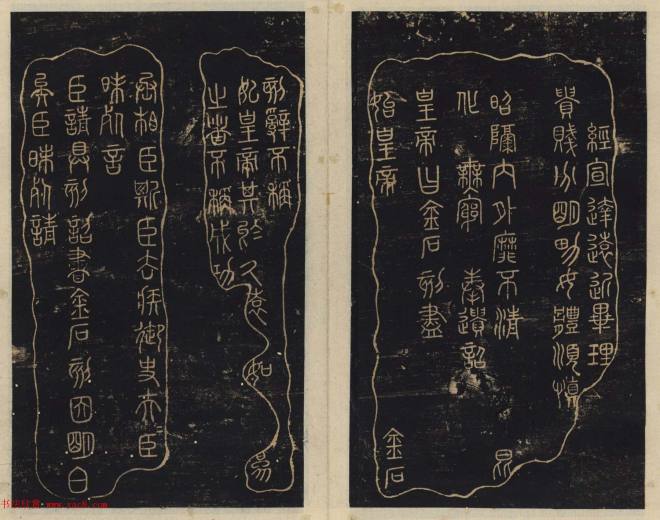 經宣達遠近畢理
貴賤分明男女體順慎
昭隔內外靡不清 昆
化無窮 奉遺詔
皇帝曰金石刻盡
始皇帝 金石
刻辭不稱
始皇帝其於久遠 如 為
之者不稱成功
丞相臣斯臣去疾御史夫臣
昧死言
臣請具刻詔書金石刻因明白
矣臣昧死請
书法欣赏 www.yac8.com